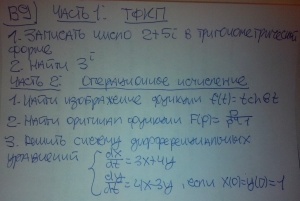 В9) Часть 1: ТФКП
1. Записать число 2+5i в тригонометрической
форме
2. Найти 3^i
Часть 2: Операционное исчисление
1. Найти изображение функции f(t)=tch6t
2. Найти оригинал функции F(p)=
3. Решить систему дифференциальных
уравнений { dx/dt = 3x+4y
dy/dt = 4x-3y, если x(0)=y(0)=1